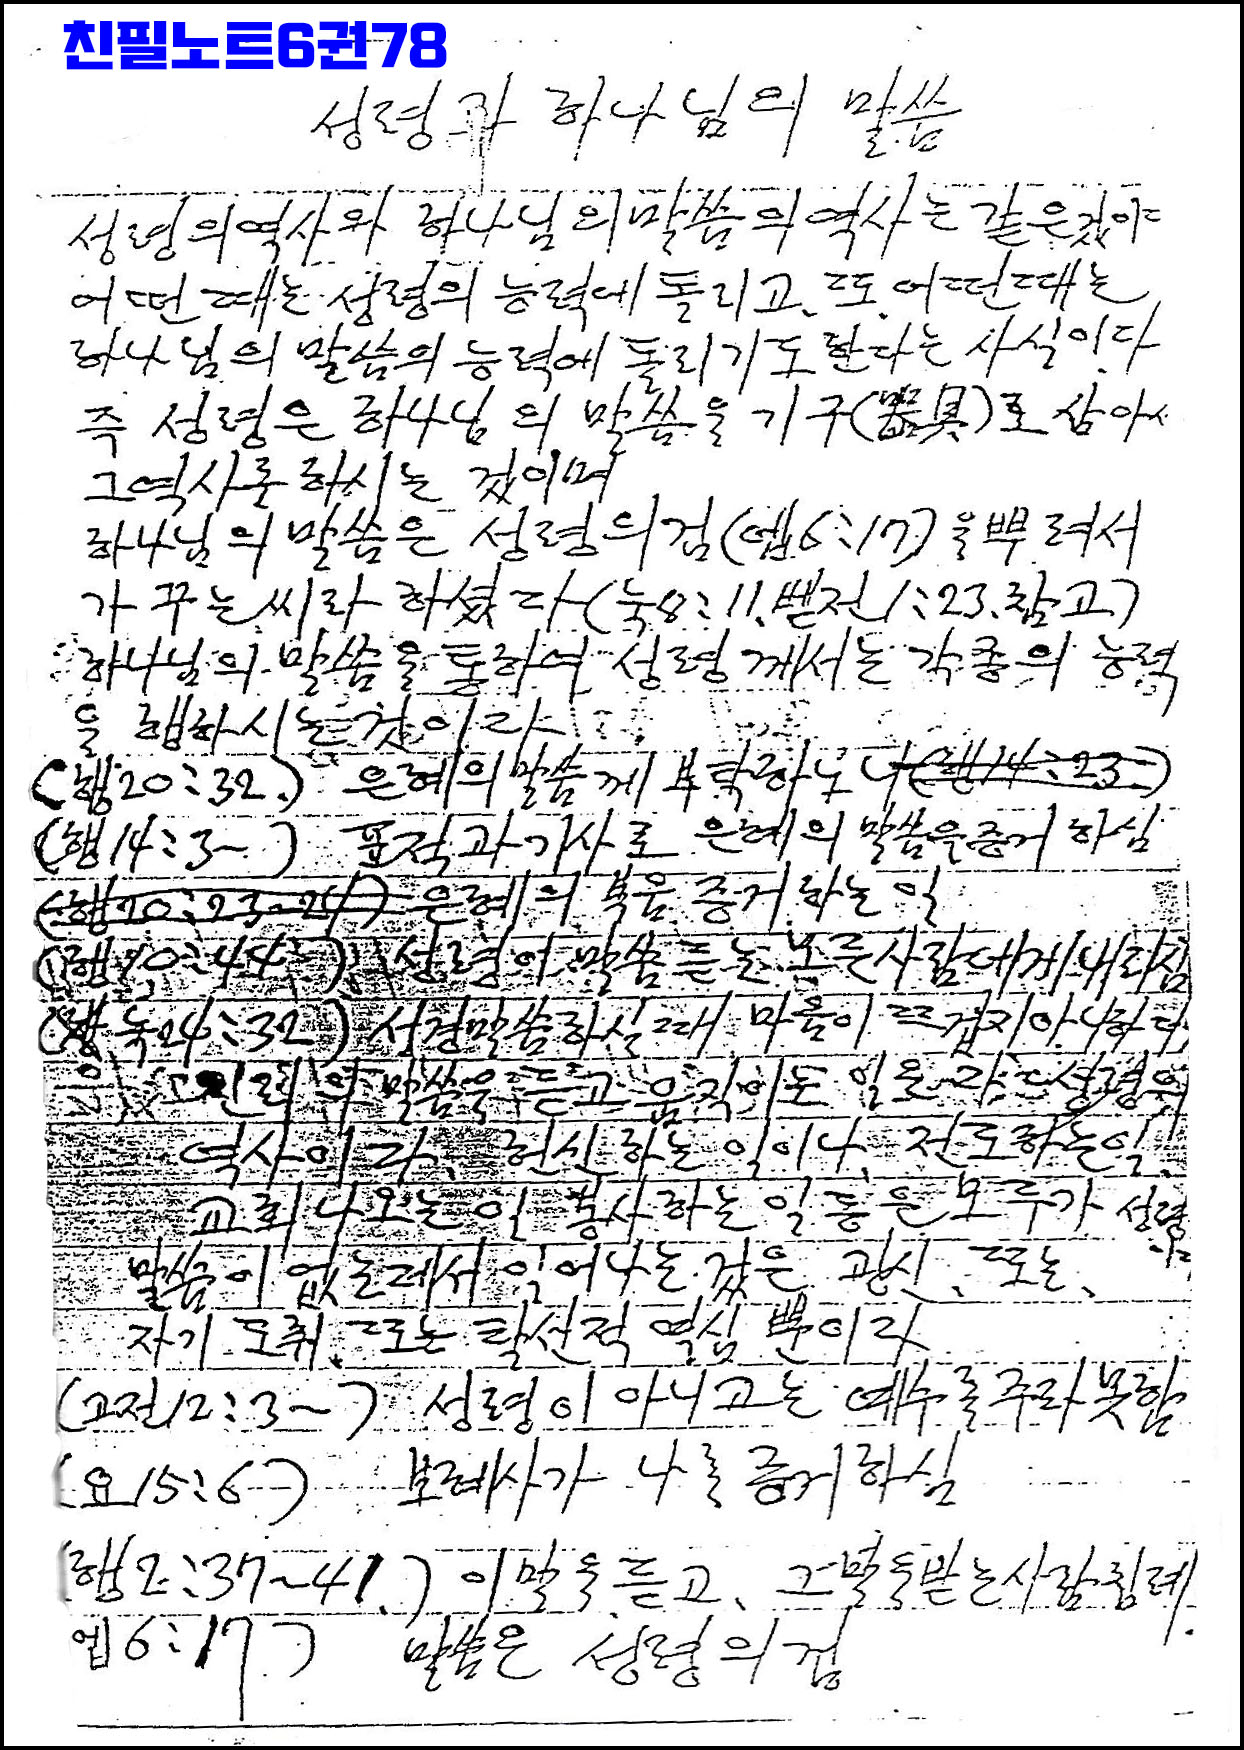 친필노트6권78
성령과 하나님의 말씀
성령의 역사와 하나님의 말씀의 역사는 같은것이다
어떤때는 성령의 능력에 돌리고, 또, 어떤때는
하나님의 말씀의 능력에 돌리기도 한다는 사실이다
즉 성령은 하나님의 말씀을 기구(器具)로 삼아서
그역사를 하시는 것이며
하나님의 말씀은 성령의검(엡6:17)을 뿌려서
가꾸는씨라 하셨다(눅8:11.벧전1:23.참고)
하나님의 말씀을 통하여 성령께서는 각종의 능력
을 행하시는 것이라
(행20:32.) 은혜의말씀께 부탁하노니(행14:23-)
(행14:3~) 표적과기사로 은혜의 말씀을증거하심
(행20:23~24) 은혜의 복음 증거하는일
(행10:44-) 성령이 말씀듣는 모든사람에게내리심
(눅24:32) 성경말씀하실때 마음이 뜨겁지아니하더
진리의 말씀을 듣고 움직이는 일은 다 성령의
역사이라. 헌신하는 일이나, 전도하는일,
교회나오는일 봉사하는일 등은 모두가 성령
말씀이 없는데서 일어나는것은 광신, 또는,
자기도취, 또는 탈선적 열심 뿐이라
(고전12:3~) 성령이 아니고는 예수를주라못함
(요15:6-) 보혜사가 나를 증거하심
(행2:37~41.) 이말을듣고, 그말을받는사람침례.
엡6:17) 말씀은 성령의검